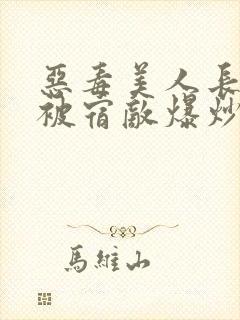 惡毒美人長
被宿敵爆炒
馬維山